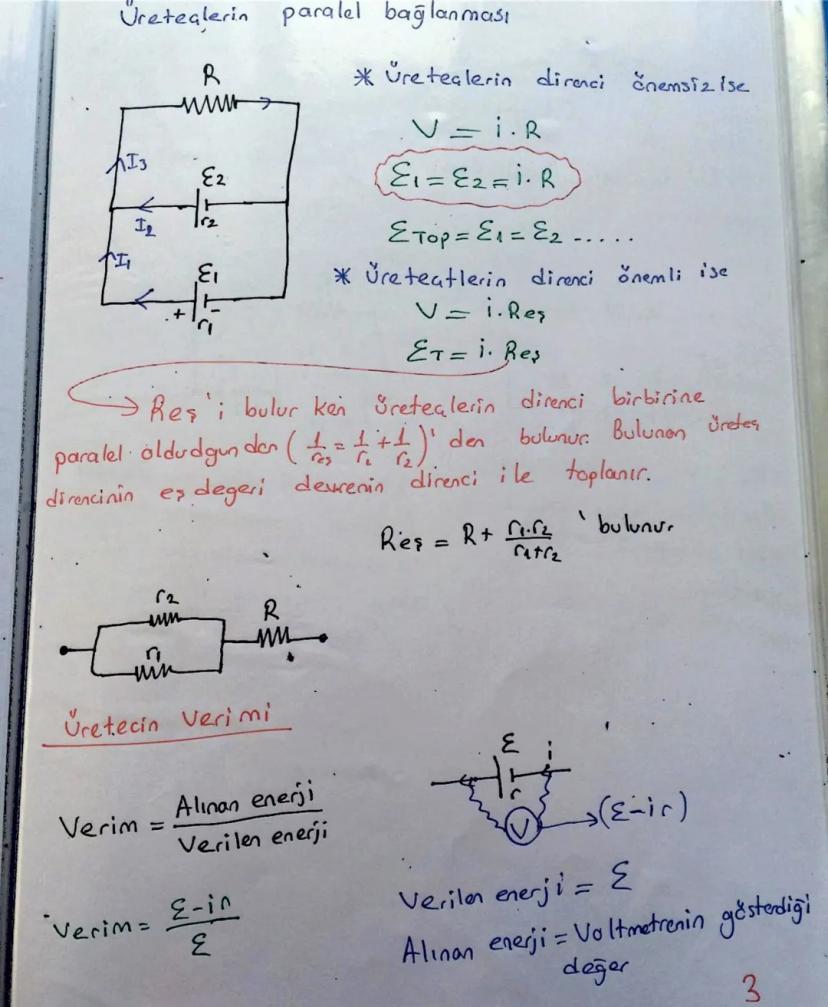 Üreteçlerin paralel bağlanması
R
* Üreteçlerin direnci önemsiz ise
V = i.R
I3
ε2
ε1 = ε2 = i.R
I2
r2
εTop = ε1 = ε2 .....
I1
ε1
* Üreteçtlerin direnci önemli ise
+ -
r1
V = i.Reş
εT = i.Reş
Reş'i bulur ken üreteçlerin direnci birbirine
paralel oldudgun dan ( 1/reş = 1/r1 + 1/r2 )' den bulunur. Bulunan üreteç
direncinin eş degeri devrenin direnci ile toplanır.
Reş = R + r1.r2 / r1+r2 ' bulunur.
r2
R
r1
Üretecin Verimi
ε i
r
Verim = Alınan enerji / Verilen enerji
V (ε-ir)
Verilen enerji = ε
Verim = ε-ir / ε
Alınan enerji = Voltmetrenin gösterdiği
değer
3